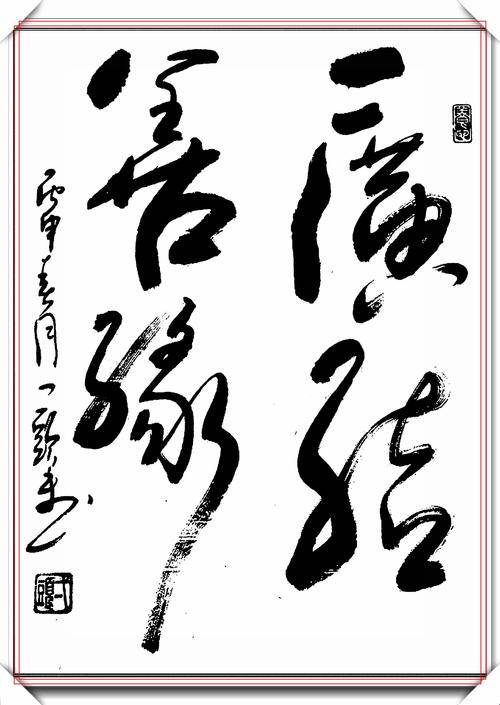 廣結
善緣
丙申春月